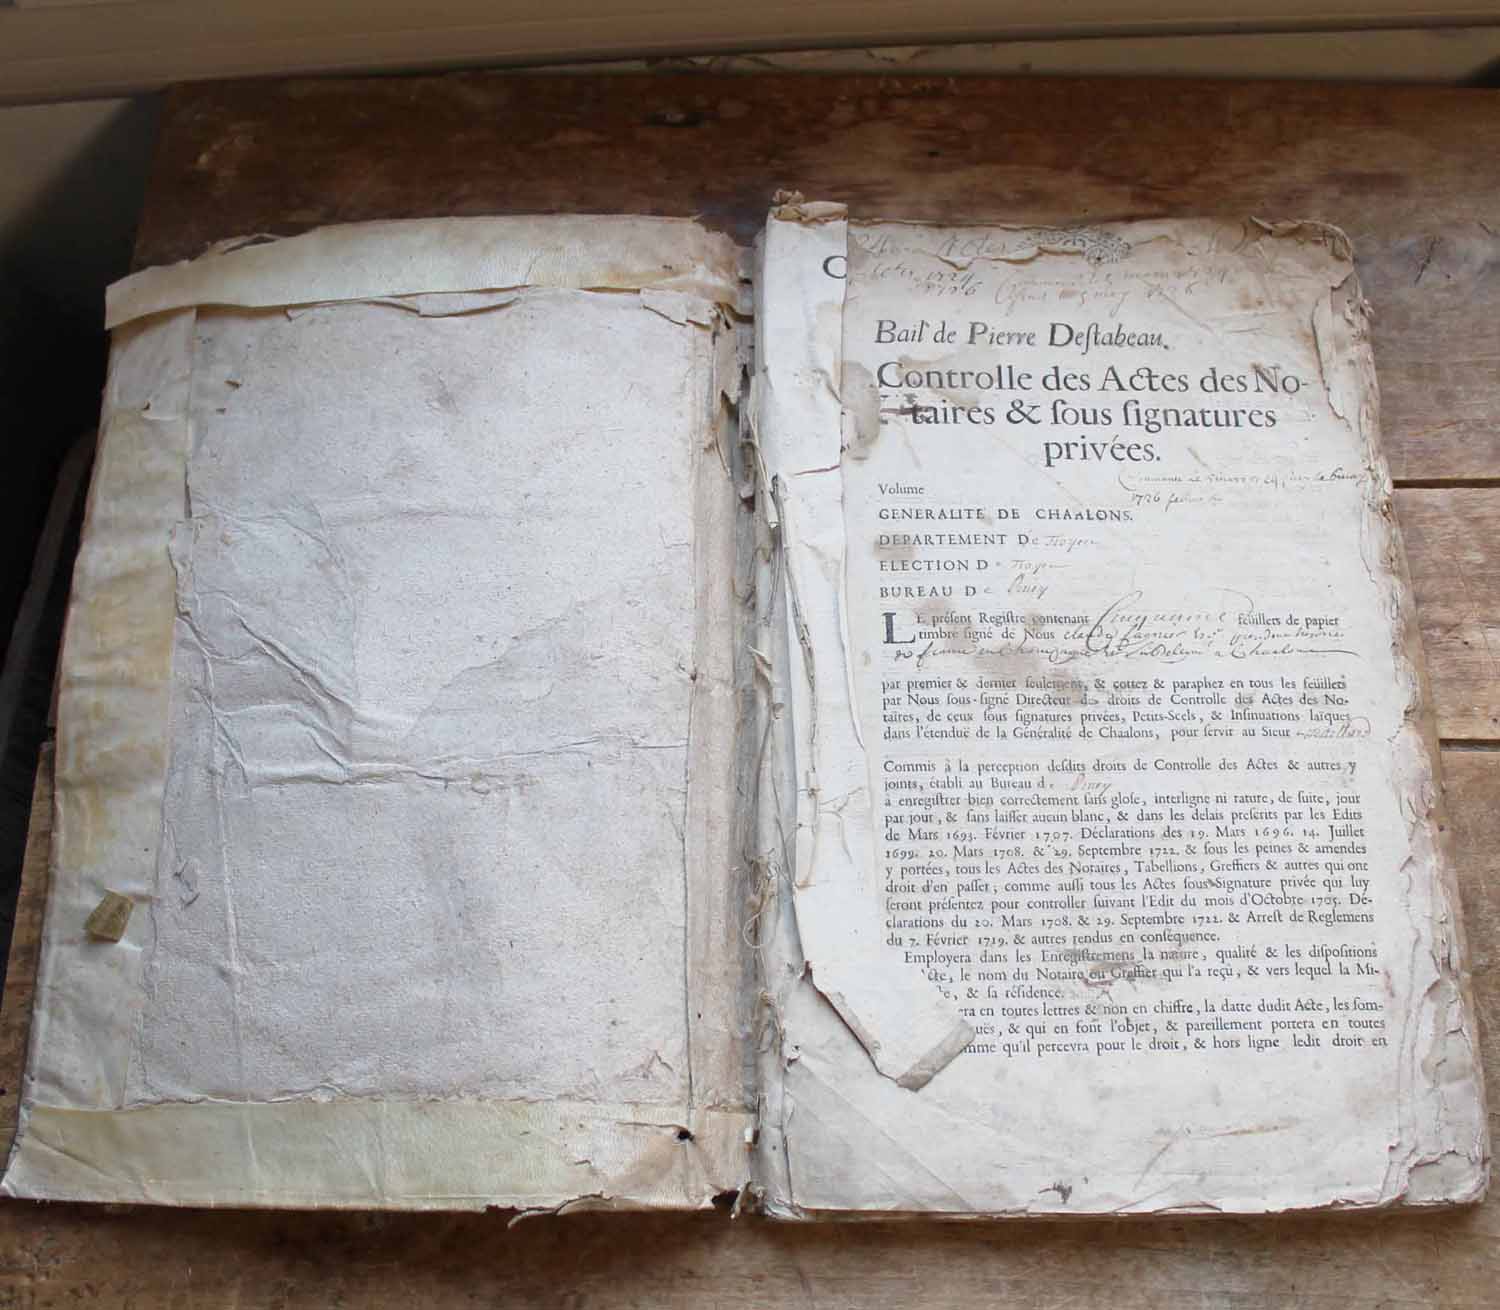 C
1724
1726 1726
Bail de Pierre Deſtabeau.
Controlle des Actes des No-
taires & ſous ſignatures
privées.
Volume
1726
GENERALITE DE CHAALONS.
DEPARTEMENT De Troyes
ELECTION De Troyes
BUREAU De Piney
LE préſent Regiſtre contenant Cinquante feüillets de papier
timbré ſigné de Nous
a Chaalons
par premier & dernier ſeulement, & cottez & paraphez en tous les feüillets
par Nous ſous-ſigné Directeur des droits de Controlle des Actes des No-
taires, de ceux ſous ſignatures privées, Petits-Scels, & Inſinuations laïques
dans l'étenduë de la Généralité de Chaalons, pour ſervir au Sieur
Commis à la perception deſdits droits de Controlle des Actes & autres y
joints, établi au Bureau de Piney
à enregiſtrer bien correctement ſans gloſe, interligne ni rature, de ſuite, jour
par jour, & ſans laiſſer aucun blanc, & dans les delais preſcrits par les Edits
de Mars 1693. Février 1707. Déclarations des 19. Mars 1696. 14. Juillet
1699. 20. Mars 1708. & 29. Septembre 1722. & ſous les peines & amendes
y portées, tous les Actes des Notaires, Tabellions, Greffiers & autres qui ont
droit d'en paſſer; comme auſſi tous les Actes ſous-Signature privée qui luy
ſeront préſentez pour controller ſuivant l'Edit du mois d'Octobre 1705. Dé-
clarations du 20. Mars 1708. & 29. Septembre 1722. & Arreſt de Reglemens
du 7. Février 1719. & autres rendus en conſéquence.
Employera dans les Enregiſtremens la nature, qualité & les diſpoſitions
cte, le nom du Notaire ou Greffier qui l'a reçû, & vers lequel la Mi-
e, & ſa réſidence.
era en toutes lettres & non en chiffre, la datte dudit Acte, les ſom-
uës, & qui en font l'objet, & pareillement portera en toutes
mme qu'il percevra pour le droit, & hors ligne ledit droit en